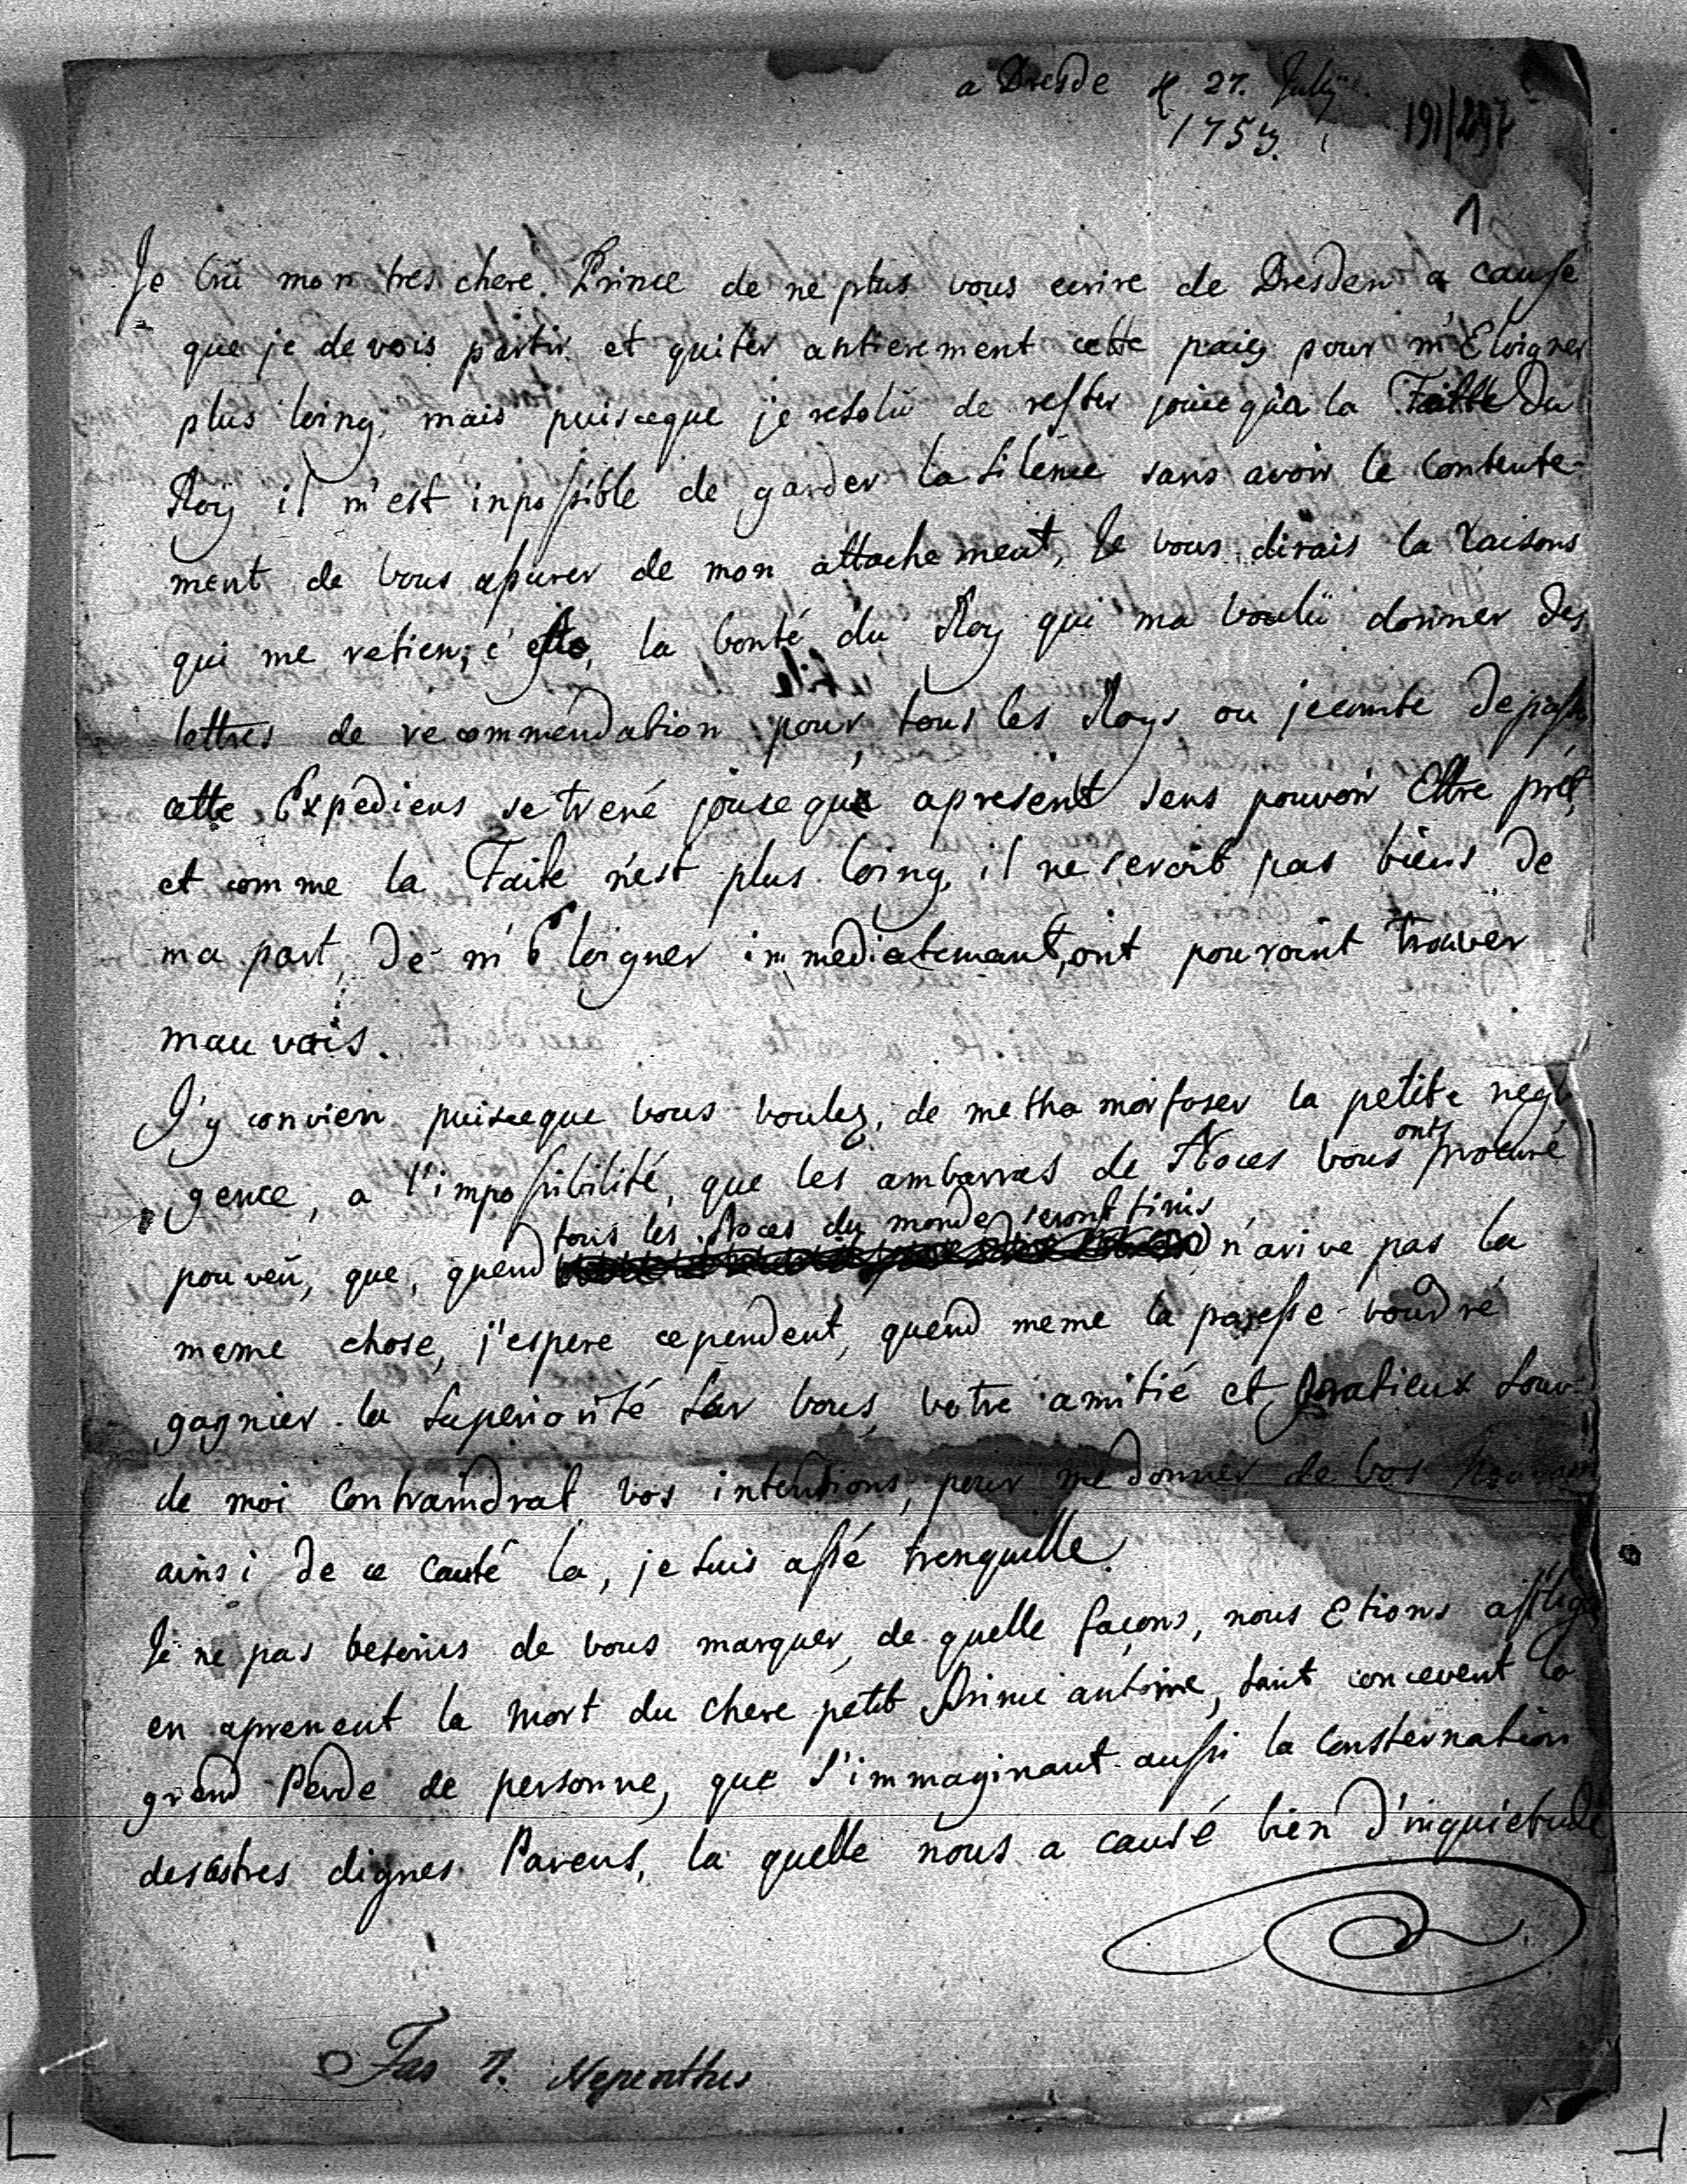 a Dresde d 27. Jully
1753.
191/297
1
Je crû mon tres chere Prince de ne plus vous ecrire de Dresden a cause
que je devois partir et quiter antierement cette paiis pour m'Eloigner
plus loing, mais puisceque je resolû de rester jouce qu'a la Faitte du
Roy il m'est inpossible de garder la silence sans avoir le contente-
ment de vous assurer de mon attachement, Je vous dirais la raisons
qui me retien; c'este, la bonté du Roy qui ma voulû donner des
lettres de recommendation pour tous les Roys ou jecomte de passe
cette Expediens se trené jouceque apresent sens pouvoir Ettre prêt,
et comme la Faite n'est plus loing, il ne seroit pas biens de
ma part, de m'Eloigner immediatemant, ont pouroint trouver
mauvais.
J'y convien puisceque vous voulez, de methamorfoser la petite negli
gence, a l'impossibilité, que les ambarras de Noces vous onts procuré
pouveû, que, quend tous les Noces du monde seront finis n'arive pas la
meme chose, j'espere cependent, quend meme la paresse voudré
gagnier la superiorité sur vous, votre amitié et gratieux souv-
de moi contraindrat vos intentions, pour me donner de vos
ainsi de ce cauté la, je suis assé trenquille.
Je ne pas besoins de vous marquer, de quelle façons, nous Etions afflige
en aprenent la mort du chere petit Prince antoine, tant concevent la
grend Perde de personne, que s'immaginant aussi la consternation
desastres dignes Parens, la quelle nous a causé bien d'inquietude
Fas 7. Nepenthes